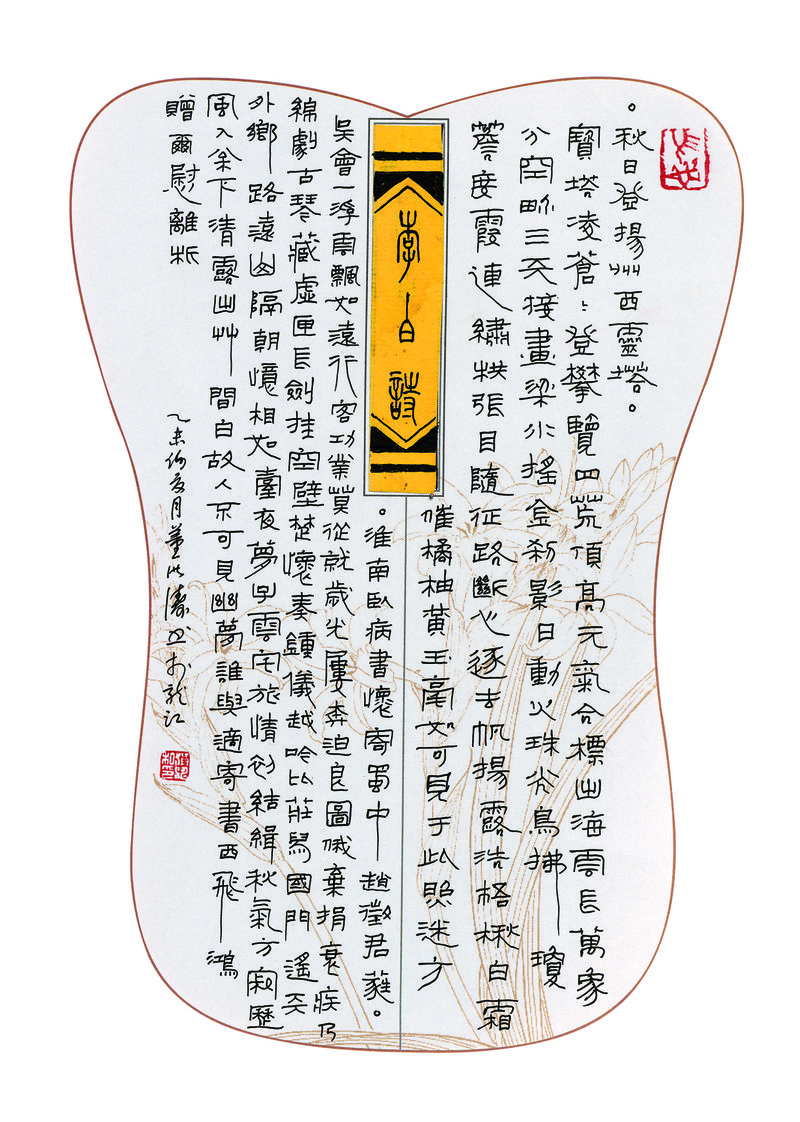 。秋日登揚州西靈塔。
寶塔凌蒼〻登攀覽四荒頂高元氣合標出海雲長萬象
分空界三天接畫梁水搖金刹影日動火珠光鳥拂瓊
簷度霞連繡栱張目隨征路斷心逐去帆揚露浩格楸白霜
催橘柚黃玉毫如可見于此照迷方
李白詩
。淮南臥病書懷寄蜀中趙徵君蕤。
吳會一浮雲飄如遠行客功業莫從就歲光屢奔迫良圖俄棄捐衰疾乃
綿劇古琴藏虛匣長劍挂空壁楚懷奏鍾儀越吟比莊舄國門遙天
外鄉路遠山隔朝憶相如臺夜夢子雲宅旅情初結緝秋氣方寂歷
風入松下清露出艸間白故人不可見幽夢誰與適寄書西飛鴻
贈爾慰離析
乙未仲夏月董濤書於龍江